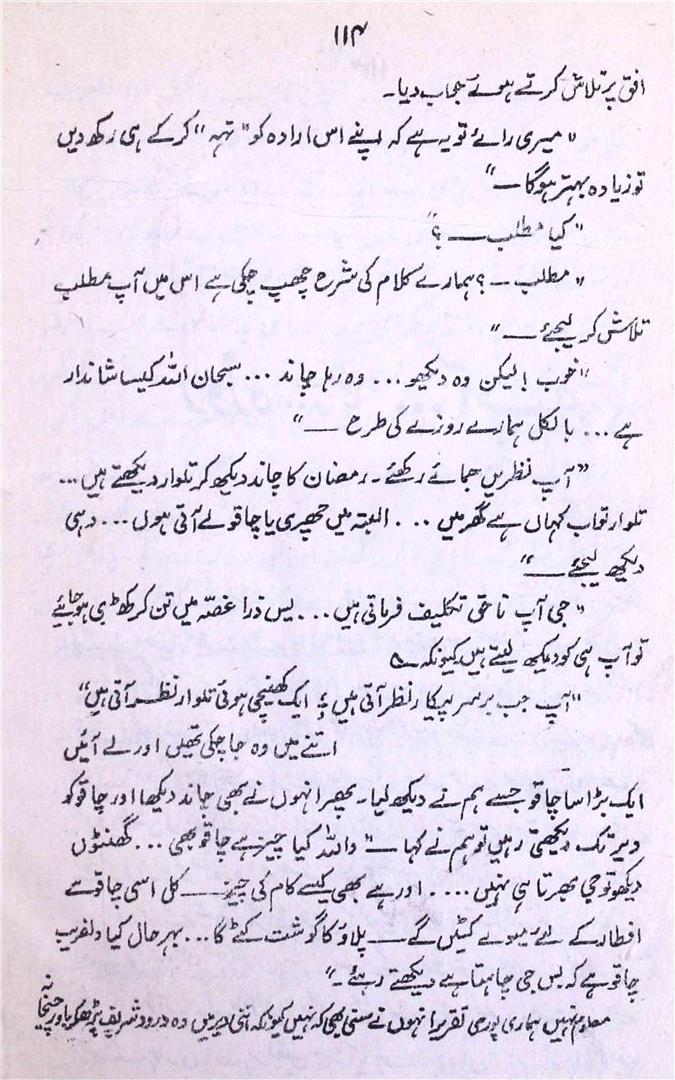 ۱۱۴
افق پر تلاش کرتے ہوئے جواب دیا۔
"میری رائے تو یہ ہے کہ اپنے اس ارادہ کو "تہہ" کرکے ہی رکھ دیں
تو زیادہ بہتر ہوگا —"
"کیا مطلب — ؟"
"مطلب — ؟ ہمارے کلام کی شرح چھپ چکی ہے اس میں آپ مطلب
تلاش کر لیجئے —"
"خوب! لیکن وہ دیکھو ... وہ رہا چاند ... سبحان اللہ کیسا شاندار
ہے ... بالکل ہمارے روزے کی طرح —"
"آپ نظریں جمائے رکھئے۔ رمضان کا چاند دیکھ کر تلوار دیکھتے ہیں ...
تلوار تو اب کہاں ہے گھر میں ... البتہ میں چھری یا چاقو لے آتی ہوں ... وہی
دیکھ لیجئے —"
"جی آپ ناحق تکلیف فرماتی ہیں ... بس ذرا غصّہ میں تن کر کھڑی ہو جائیے
تو آپ ہی کو دیکھ لیتے ہیں کیونکہ ؎
"آپ جب برسرِ پیکار نظر آتی ہیں ؛ ایک کھینچی ہوئی تلوار نظر آتی ہیں"
اتنے میں وہ جا چکی تھیں اور لے آئیں
ایک بڑا سا چاقو جسے ہم نے دیکھ لیا۔ پھر انہوں نے بھی چاند دیکھا اور چاقو کو
دیر تک دیکھتی رہیں تو ہم نے کہا — "واللہ کیا چیز ہے چاقو بھی ... گھنٹوں
دیکھو تو جی بھرتا ہی نہیں .... اور ہے بھی کیسے کام کی چیز — کل اسی چاقو سے
افطار کے لئے میوے کٹیں گے — پلاؤ کا گوشت کٹے گا ... بہرحال کیا دلفریب
چاقو ہے کہ بس جی چاہتا ہے دیکھتے رہئے۔"
معلوم نہیں ہماری پوری تقریر انہوں نے سنی بھی کہ نہیں کیونکہ اتنی دیر میں وہ درود شریف پڑھ کر باورچی خانہ